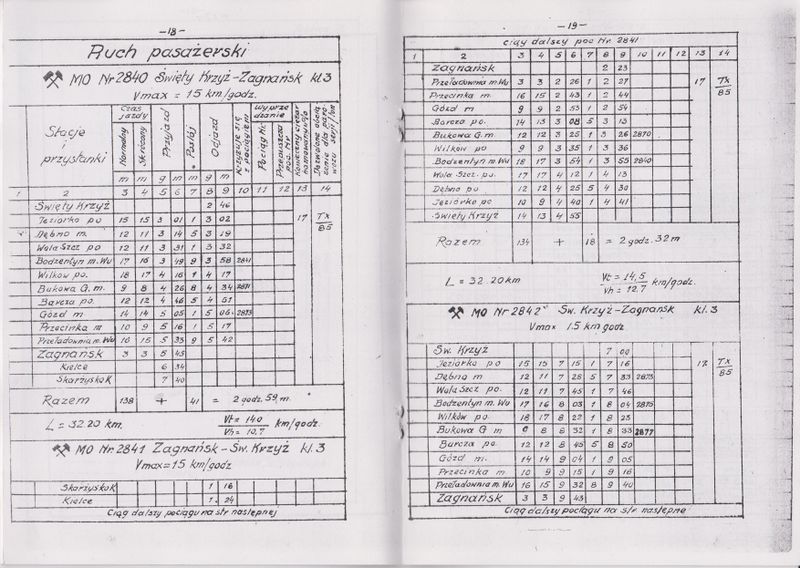 —18—
Ruch pasażerski
MO Nr 2840 Święty Krzyż-Zagnańsk kl.3
Vmax = 15 km/godz.
Stacje i przystanki
Czas jazdy
Normalny
Skrócony
Przyjazd
Postój
Odjazd
Krzyżuje się z pociągiem
Wyprze dzanie
Pociągi
Przepuszcza poc. Nr
m m g m m g m
1 2 3 4 5 6 7 8 9 10 11 12 13 14
Święty Krzyż 2 46
Jeziorko po 15 15 3 01 1 3 02 17 Tx 85
Dębno m. 12 11 3 14 5 3 19
Wola Szcz po 12 12 3 31 1 3 32
Bodzentyn m.Wu 17 16 3 49 9 3 58 2841
Wilków po. 18 17 4 16 1 4 17
Bukowa G. m. 9 8 4 26 8 4 34 2871
Barcza po. 12 12 4 46 5 4 51
Gózd m 14 14 5 05 1 5 06 2873
Przecinka m 10 9 5 16 1 5 17
Przeładownia m.Wu 16 15 5 33 9 5 42
Zagnańsk 3 3 5 45
Kielce 6 34
Skarżysko K 7 40
Razem 138 + 41 = 2 godz. 59 m.
L = 32.20 km. Vt = 14,0 Vh = 10,7 km/godz.
MO Nr 2841 Zagnańsk - Św. Krzyż kl.3
Vmax = 15 km/godz
Skarżysko K 1 16
Kielce 1. 24
Ciąg dalszy pociągu na str następnej
—19—
ciąg dalszy poc Nr. 2841
1 2 3 4 5 6 7 8 9 10 11 12 13 14
Zagnańsk 2 23
Przeładownia m.Wu 3 3 2 26 1 2 27 17 Tx 85
Przecinka m. 16 15 2 43 1 2 44
Gózd m 9 9 2 53 1 2 54
Barcza po. 14 13 3 08 5 3 13
Bukowa G. m. 12 12 3 25 1 3 26 2870
Wilków po 9 9 3 35 1 3 36
Bodzentyn m Wu 18 17 3 54 1 3 55 2840
Wola Szcz. po. 17 17 4 12 1 4 13
Dębno po 12 12 4 25 5 4 30
Jeziorko po 10 9 4 40 1 4 41
Święty Krzyż 14 13 4 55
Razem 134 + 18 = 2 godz. 32 m
L = 32.20 km Vt = 14,5 Vh = 12.7 km/godz.
MO Nr 2842 Św. Krzyż-Zagnańsk kl.3
Vmax 15 km godz
Św. Krzyż 7 00
Jeziorko po 15 15 7 15 1 7 16 17 Tx 85
Dębno m 12 11 7 28 5 7 33 2873
Wola Szcz po. 12 11 7 45 1 7 46
Bodzentyn m. Wu 17 16 8 03 1 8 04 2875
Wilków po. 18 17 8 22 1 8 23
Bukowa G m 8 8 32 1 8 33 2877
Barcza po. 12 12 8 45 5 8 50
Gózd m. 14 14 9 04 1 9 05
Przecinka m 10 9 9 15 1 9 16
Przeładownia m Wu 16 15 9 32 8 9 40
Zagnańsk 3 3 9 43
Ciąg dalszy pociągu na str następnej